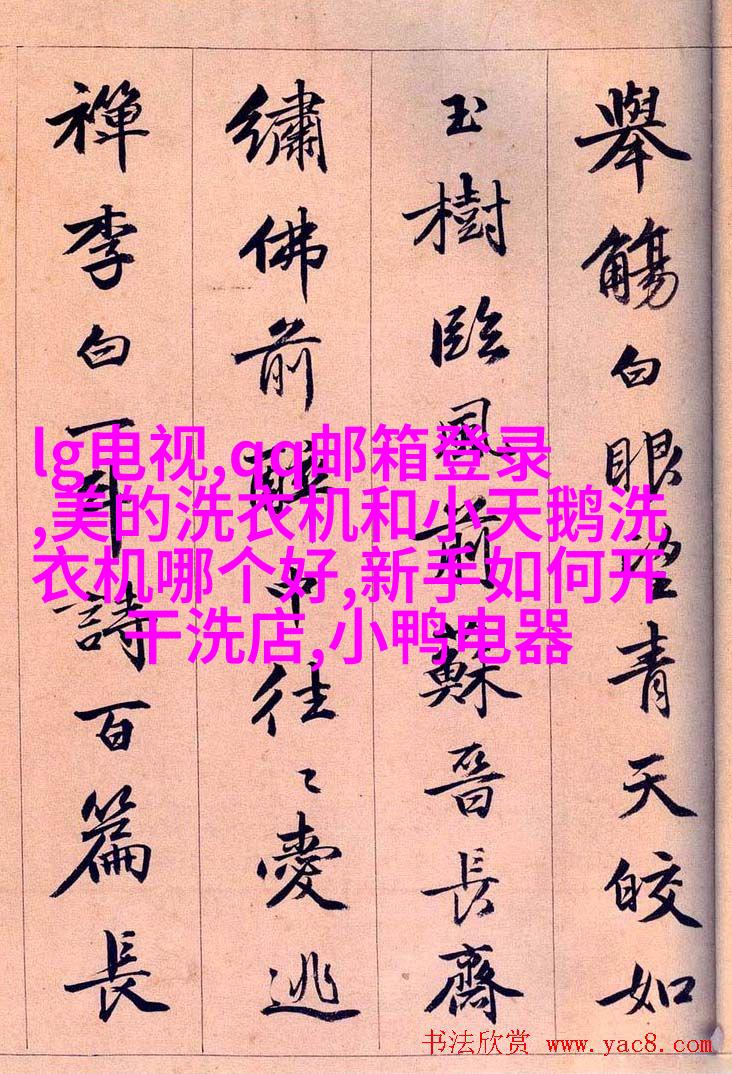 舉觴白眼望青天皎如
玉樹臨風前蘇晉長齋
繡佛前醉中往〻愛逃
禪李白一斗詩百篇長
lg电视,qq邮箱登录
,美的洗衣机和小天鹅洗
衣机哪个好,新手如何开
干洗店,小鸭电器
书法欣赏 www.yac8.com